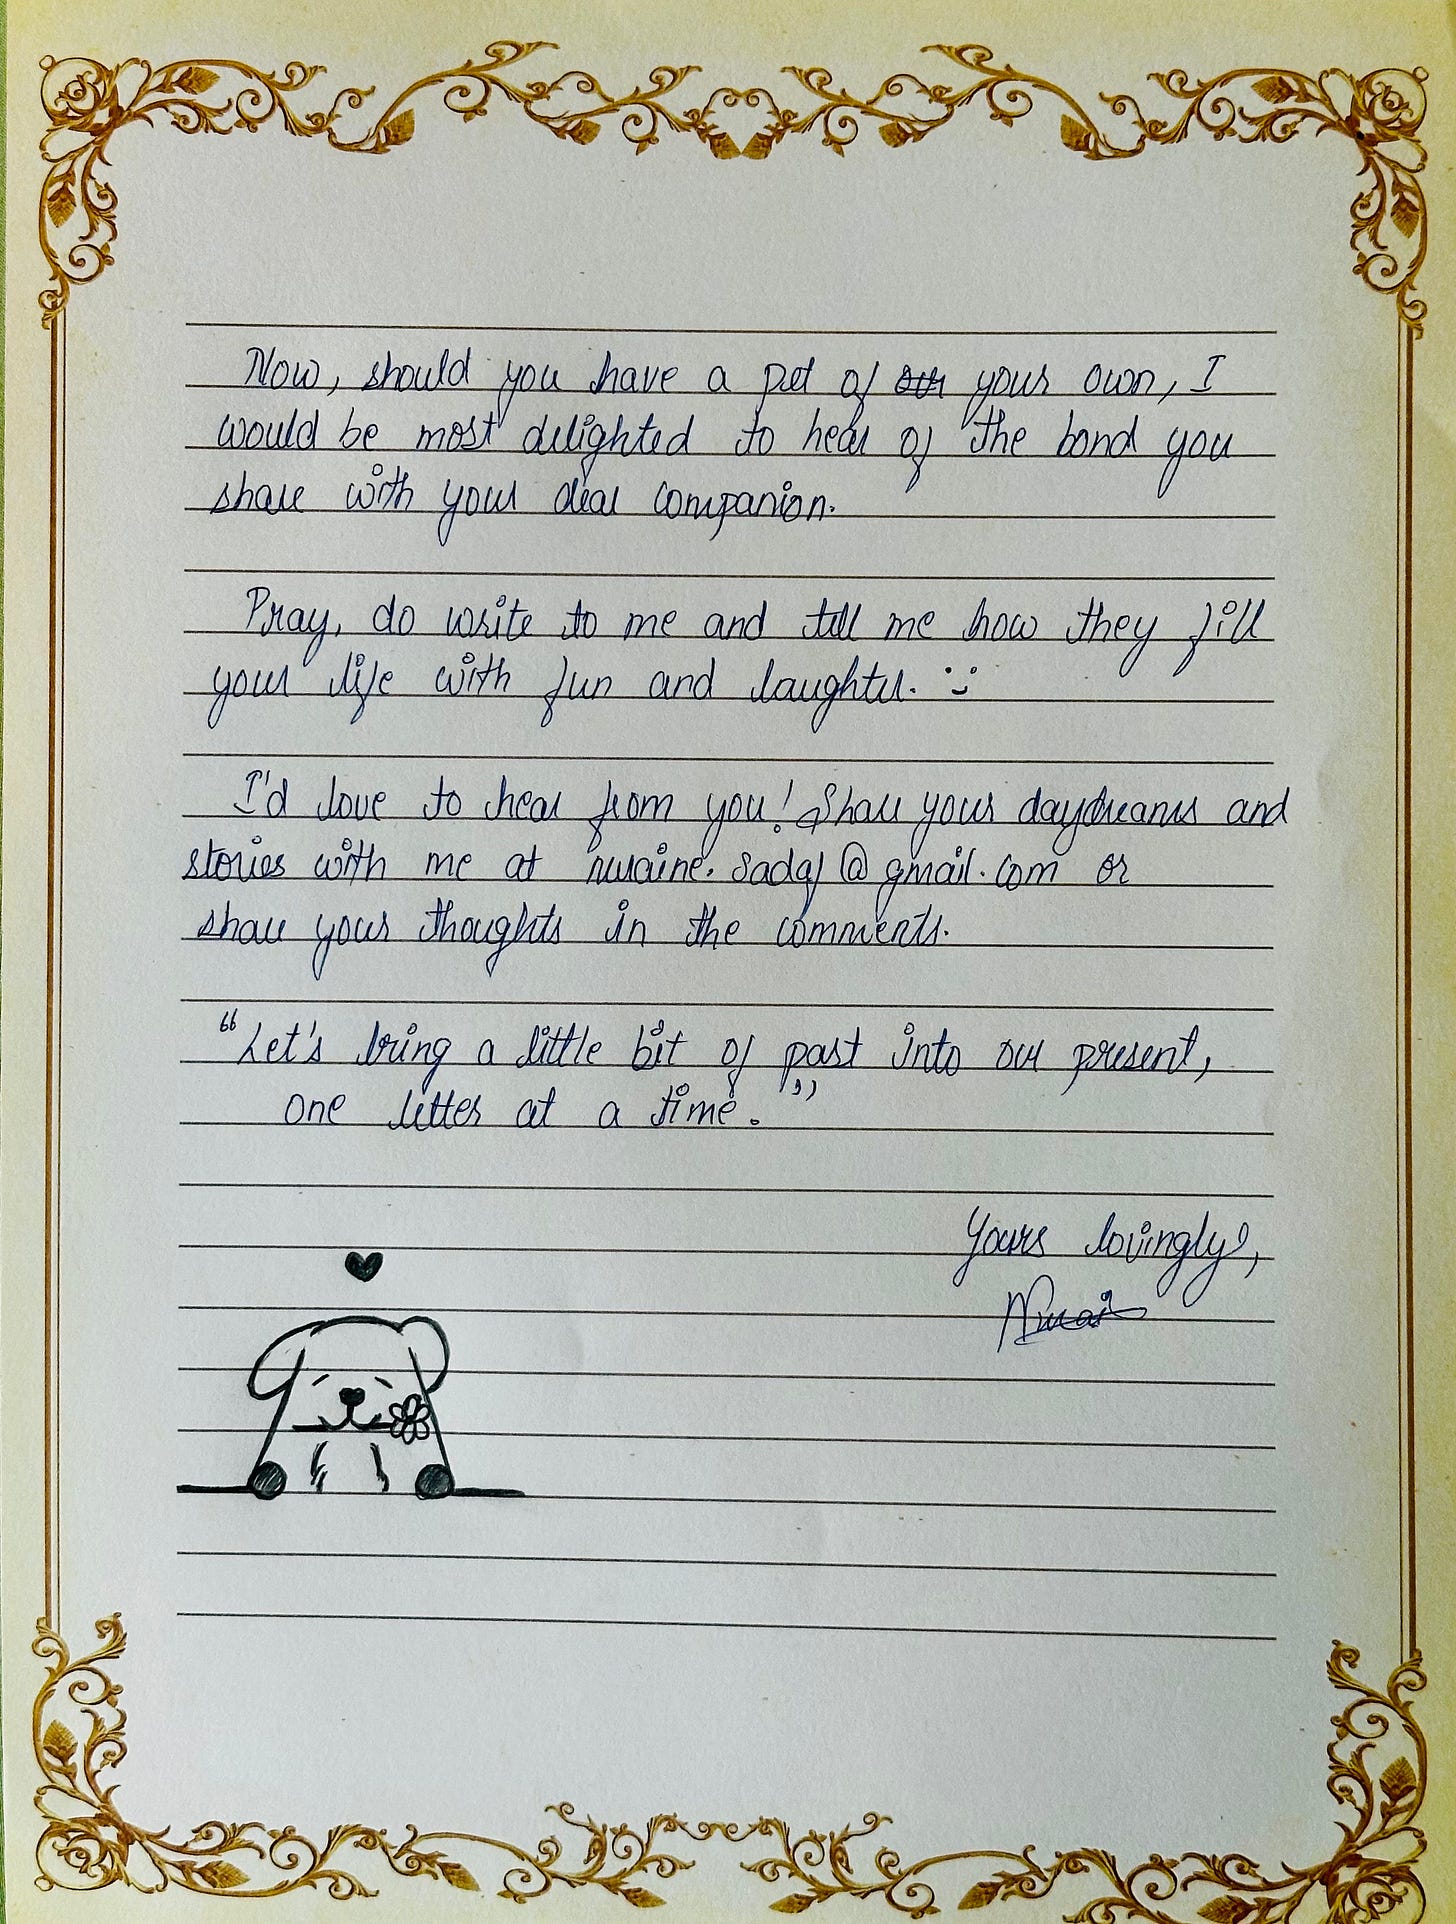 Now, should you have a pet of your own, I
would be most delighted to hear of the bond you
share with your dear companion.
Pray, do write to me and tell me how they fill
your life with fun and laughter. :)
I'd love to hear from you! Share your daydreams and
stories with me at @gmail.com or
share your thoughts in the comments.
"Let's bring a little bit of past into our present,
one letter at a time."
Yours lovingly,